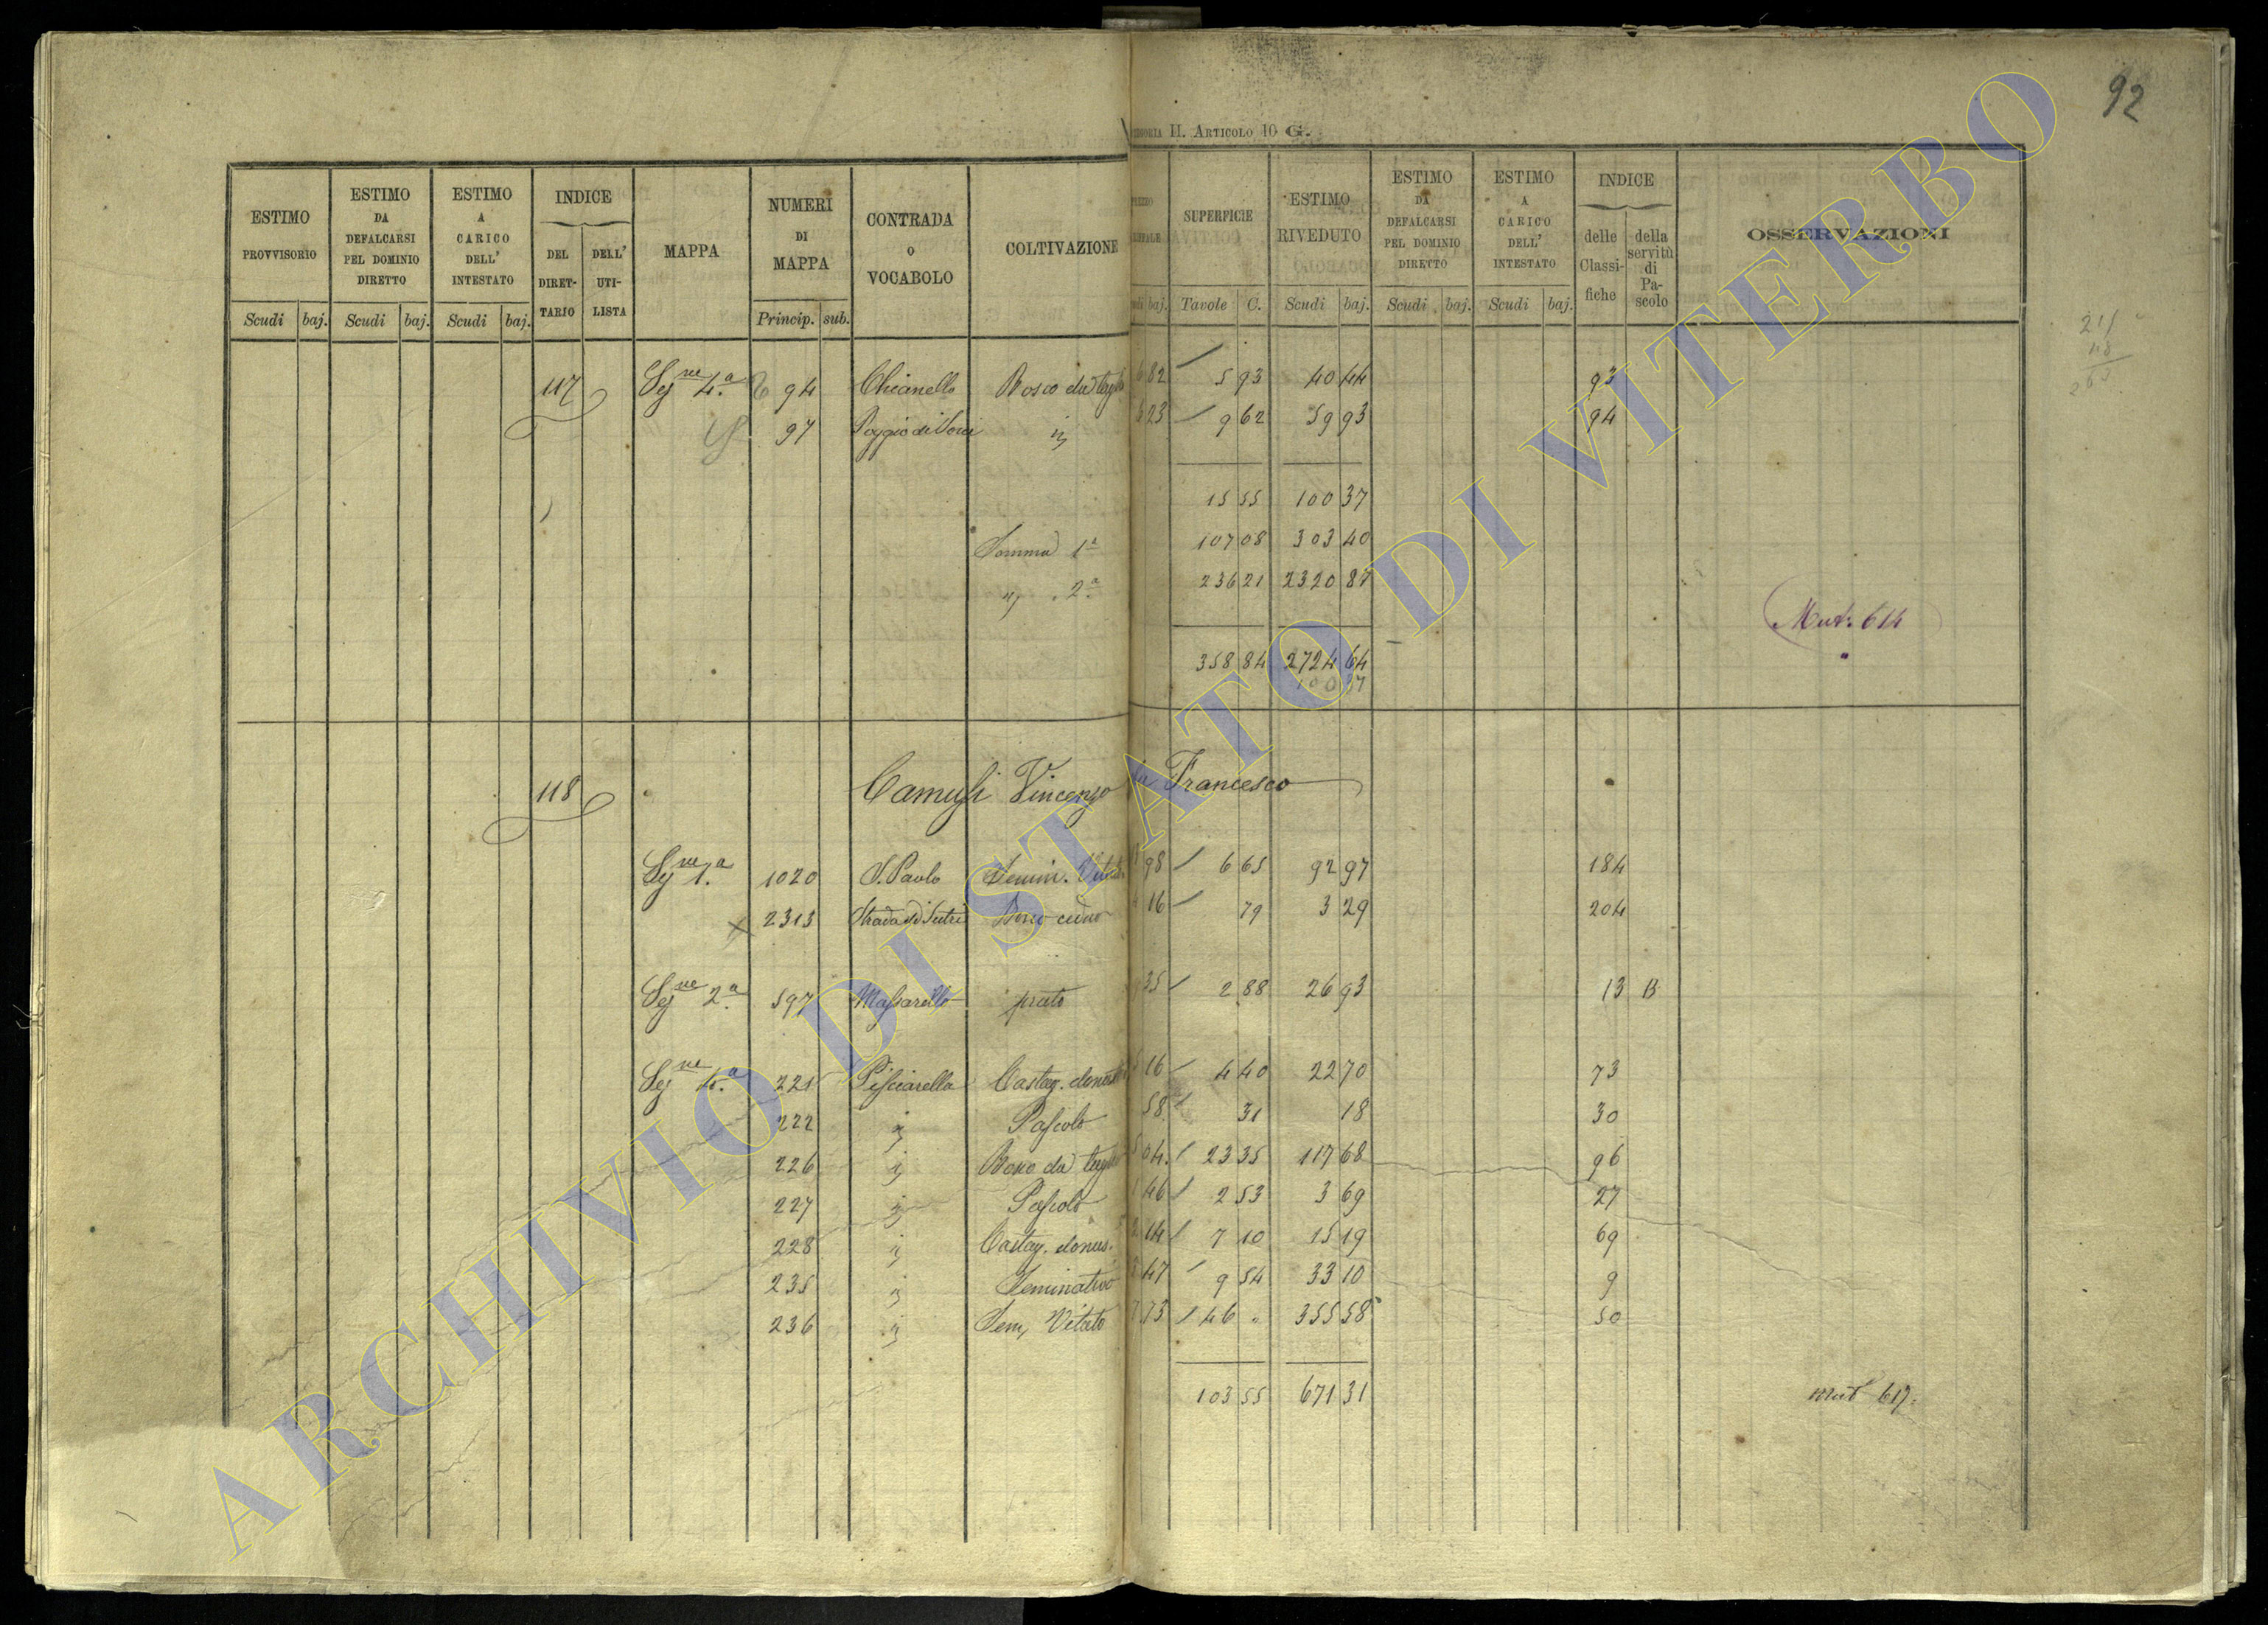 92
II. Articolo 10 G.
ESTIMO PROVVISORIO
ESTIMO DA DEFALCARSI PEL DOMINIO DIRETTO
ESTIMO A CARICO DELL' INTESTATO
INDICE
DEL DIRET-TARIO
DELL' UTI-LISTA
MAPPA
NUMERI DI MAPPA
CONTRADA o VOCABOLO
COLTIVAZIONE
SUPERFICIE
ESTIMO RIVEDUTO
ESTIMO DA DEFALCARSI PEL DOMINIO DIRETTO
ESTIMO A CARICO DELL' INTESTATO
INDICE
delle Classi-fiche
della servitù di Pa-scolo
OSSERVAZIONI
Scudi baj. Scudi baj. Scudi baj. Princip. sub. baj. Tavole C. Scudi baj. Scudi baj. Scudi baj.
117 Seg.ne 4.a 94 Chianello Bosco da taglio 82 5 93 40 44 93
97 Poggio di 23 9 62 59 93 94
15 55 100 37
Somma 1a 107 08 303 40
" 2a 236 21 2320 87
Mut. 614
358 84 2724 64
100 37
118 Camusi Vincenzo fu Francesco
Seg.ne 1.a 1020 S. Paolo Semin. Vitat. 98 6 65 92 97 184
2313 Strada di Sutri Bosco ceduo 16 79 3 29 204
Seg.ne 2.a 597 Massarello prato 35 2 88 26 93 13 B
Seg.ne 4.a 221 Pisciarella Castag. domest. 16 4 40 22 70 73
222 " Pascolo 58 31 18 30
226 " Bosco da taglio 04 23 35 117 68 96
227 " Pascolo 46 2 53 3 69 27
228 " Castag. domes. 14 7 10 15 19 69
235 " Seminativo 47 9 54 33 10 9
236 " Sem. Vitato 73 46 " 355 58 50
103 55 671 31
mut 617.
ARCHIVIO DI STATO DI VITERBO